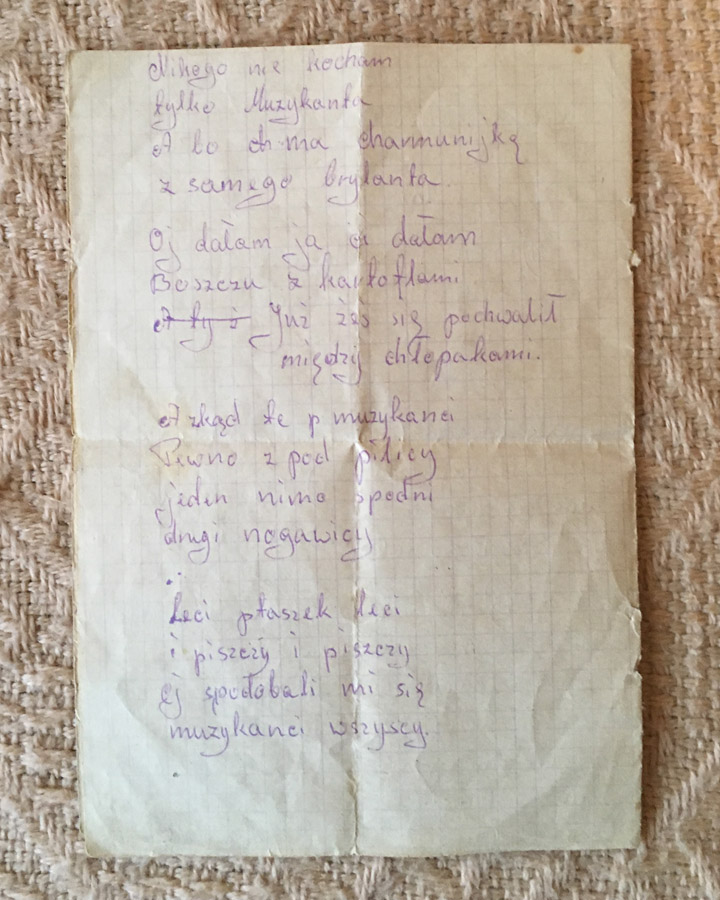 Nikogo nie kocham
tylko Muzykanta
A bo ch ma charmunijkę
z samego brylanta.
Oj dałam ja ci dałam
Boszczu z kartoflami
A ty ż Już żeś się pochwalił
między chłopakami.
A zkąd te p muzykanci
Pewno z pod pilicy
jeden nimo spodni
drugi nogawicy
Leci ptaszek leci
i piszczy i piszczy
ej spodobali mi się
muzykanci wszyscy.